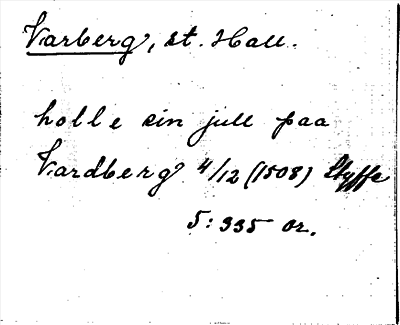 Varberg, st. Hall.
holle sin jull paa
Vardberg 4/12 (1508) Styffe
5:335 or.